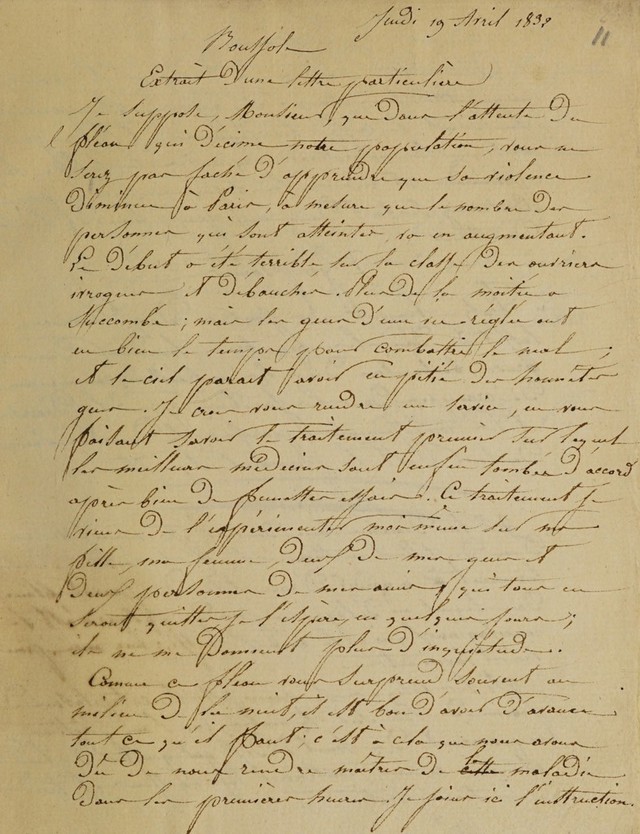 Jeudi 19 Avril 1832
11
Boussole
Extrait d'une lettre particulière
Je suppose, Monsieur que dans l'attente du
fléau qui décime notre population, vous ne
serez pas faché d'apprendre que sa violence
diminue à Paris, à mesure que le nombre des
personnes qui sont atteintes va en augmentant.
Le début a été terrible sur la classe des ouvriers
ivrognes et débauchés. Plus de la moitié a
succombé ; mais les gens d'une vie réglée ont
eu bien le temps pour combattre le mal ;
et le ciel parait avoir eu pitié des honnêtes
gens. Je crois vous rendre un service, en vous
faisant savoir le traitement premier sur lequel
les meilleurs médecins sont enfin tombés d'accord
après bien de funestes essais. Ce traitement je
viens de l'expérimenter moi même sur ma
fille, ma femme, deux de mes gens et
deux personnes de mes amis, qui tous en
seront quittes je l'espère, en quelques jours ;
ils ne me donnent plus d'inquiétude.
Comme ce fléau vous surprend souvent au
milieu de la nuit, il est bon d'avoir d'avance
tout ce qu'il faut ; c'est à cela que nous avons
dû de nous rendre maîtres de la maladie
dans les premières heures. Je joins ici l'instruction